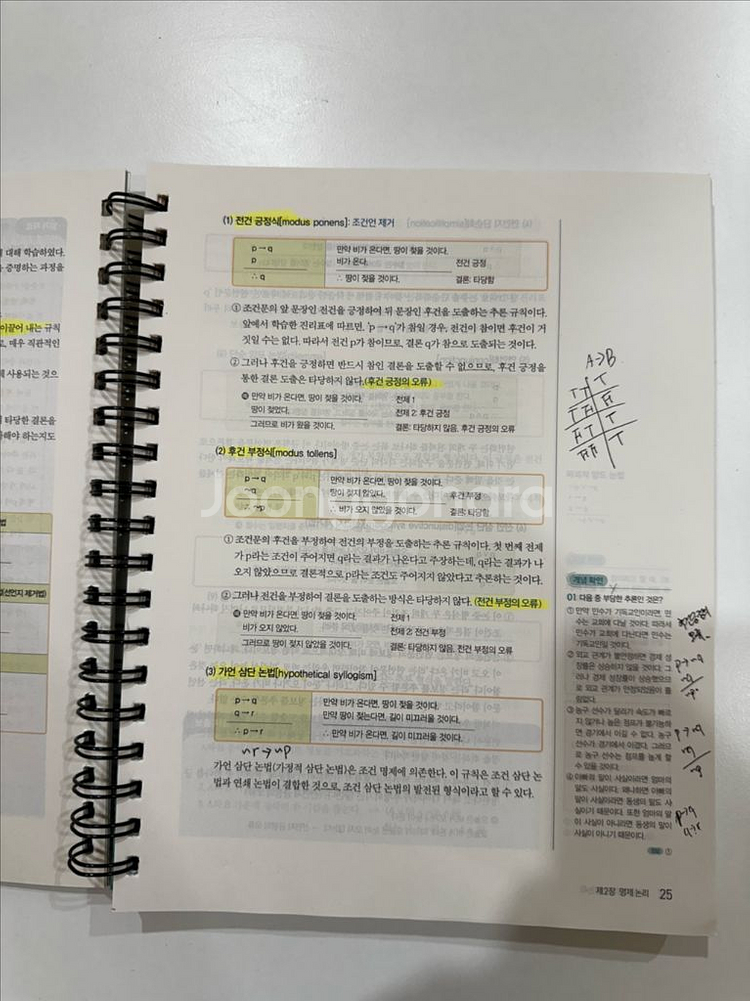 대해 학습하였다.
증명하는 과정을
이끌어 내는 규칙
매우 직관적인
사용되는 것으
타당한 결론을
해야 하는지도
(1) 전건 긍정식[modus ponens]: 조건언 제거
p → q 만약 비가 온다면, 땅이 젖을 것이다.
p 비가 온다. 전건 긍정
∴ q ∴ 땅이 젖을 것이다. 결론: 타당함
① 조건문의 앞 문장인 전건을 긍정하여 뒤 문장인 후건을 도출하는 추론 규칙이다.
앞에서 학습한 진리표에 따르면, 'p → q'가 참일 경우, 전건이 참이면 후건이 거
짓일 수는 없다. 따라서 전건 p가 참이므로, 결론 q가 참으로 도출되는 것이다.
② 그러나 후건을 긍정하면 반드시 참인 결론을 도출할 수 없으므로, 후건 긍정을
통한 결론 도출은 타당하지 않다.(후건 긍정의 오류)
예 만약 비가 온다면, 땅이 젖을 것이다. 전제 1
땅이 젖었다. 전제 2: 후건 긍정
그러므로 비가 왔을 것이다. 결론: 타당하지 않음, 후건 긍정의 오류
(2) 후건 부정식[modus tollens]
p → q 만약 비가 온다면, 땅이 젖을 것이다.
~q 땅이 젖지 않았다. 후건 부정
∴ ~p ∴ 비가 오지 않았을 것이다. 결론: 타당함
Joonggonara
① 조건문의 후건을 부정하여 전건의 부정을 도출하는 추론 규칙이다. 첫 번째 전제
가 p라는 조건이 주어지면 q라는 결과가 나온다고 주장하는데, q라는 결과가 나
오지 않았으므로 결론적으로 p라는 조건도 주어지지 않았다고 추론하는 것이다.
② 그러나 전건을 부정하여 결론을 도출하는 방식은 타당하지 않다. (전건 부정의 오류)
예 만약 비가 온다면, 땅이 젖을 것이다. 전제 1
비가 오지 않았다. 전제 2: 전건 부정
그러므로 땅이 젖지 않았을 것이다. 결론: 타당하지 않음, 전건 부정의 오류
(3) 가언 삼단 논법[hypothetical syllogism]
p → q 만약 비가 온다면, 땅이 젖을 것이다.
q → r 만약 땅이 젖는다면, 길이 미끄러울 것이다.
∴ p → r ∴ 만약 비가 온다면, 길이 미끄러울 것이다.
~r → ~p
가언 삼단 논법(가정적 삼단 논법)은 조건 명제에 의존한다. 이 규칙은 조건 삼단 논
법과 연쇄 논법이 결합한 것으로, 조건 삼단 논법의 발전된 형식이라고 할 수 있다.
A→B
T T T
T F F
F T T
F F T
개념 확인
01 다음 중 부당한 추론인 것은?
① 만약 민수가 기독교인이라면, 민
수는 교회에 다닐 것이다. 따라서
민수가 교회에 다닌다면 민수는
기독교인일 것이다.
② 외교 관계가 불안정하면 경제 성
장률은 상승하지 않을 것이다. 그
러나 경제 성장률이 상승했으므
로 외교 관계가 안정되었음이 틀
림없다.
③ 농구 선수가 달리기 속도가 빠르
지 않거나 높은 점프가 불가능하
면 경기에서 이길 수 없다. 농구
선수가 경기에서 이겼다. 그러므
로 농구 선수는 점프를 높게 할
수 있을 것이다.
④ 아빠의 말이 사실이라면 엄마의
말도 사실이다. 왜냐하면 아빠의
말이 사실이라면 동생의 말도 사
실이기 때문이다. 또한 엄마의 말
이 사실이 아니라면 동생의 말이
사실이 아니기 때문이다.
p→q
p→q
p→q
정답 ①
제2장 명제 논리 25